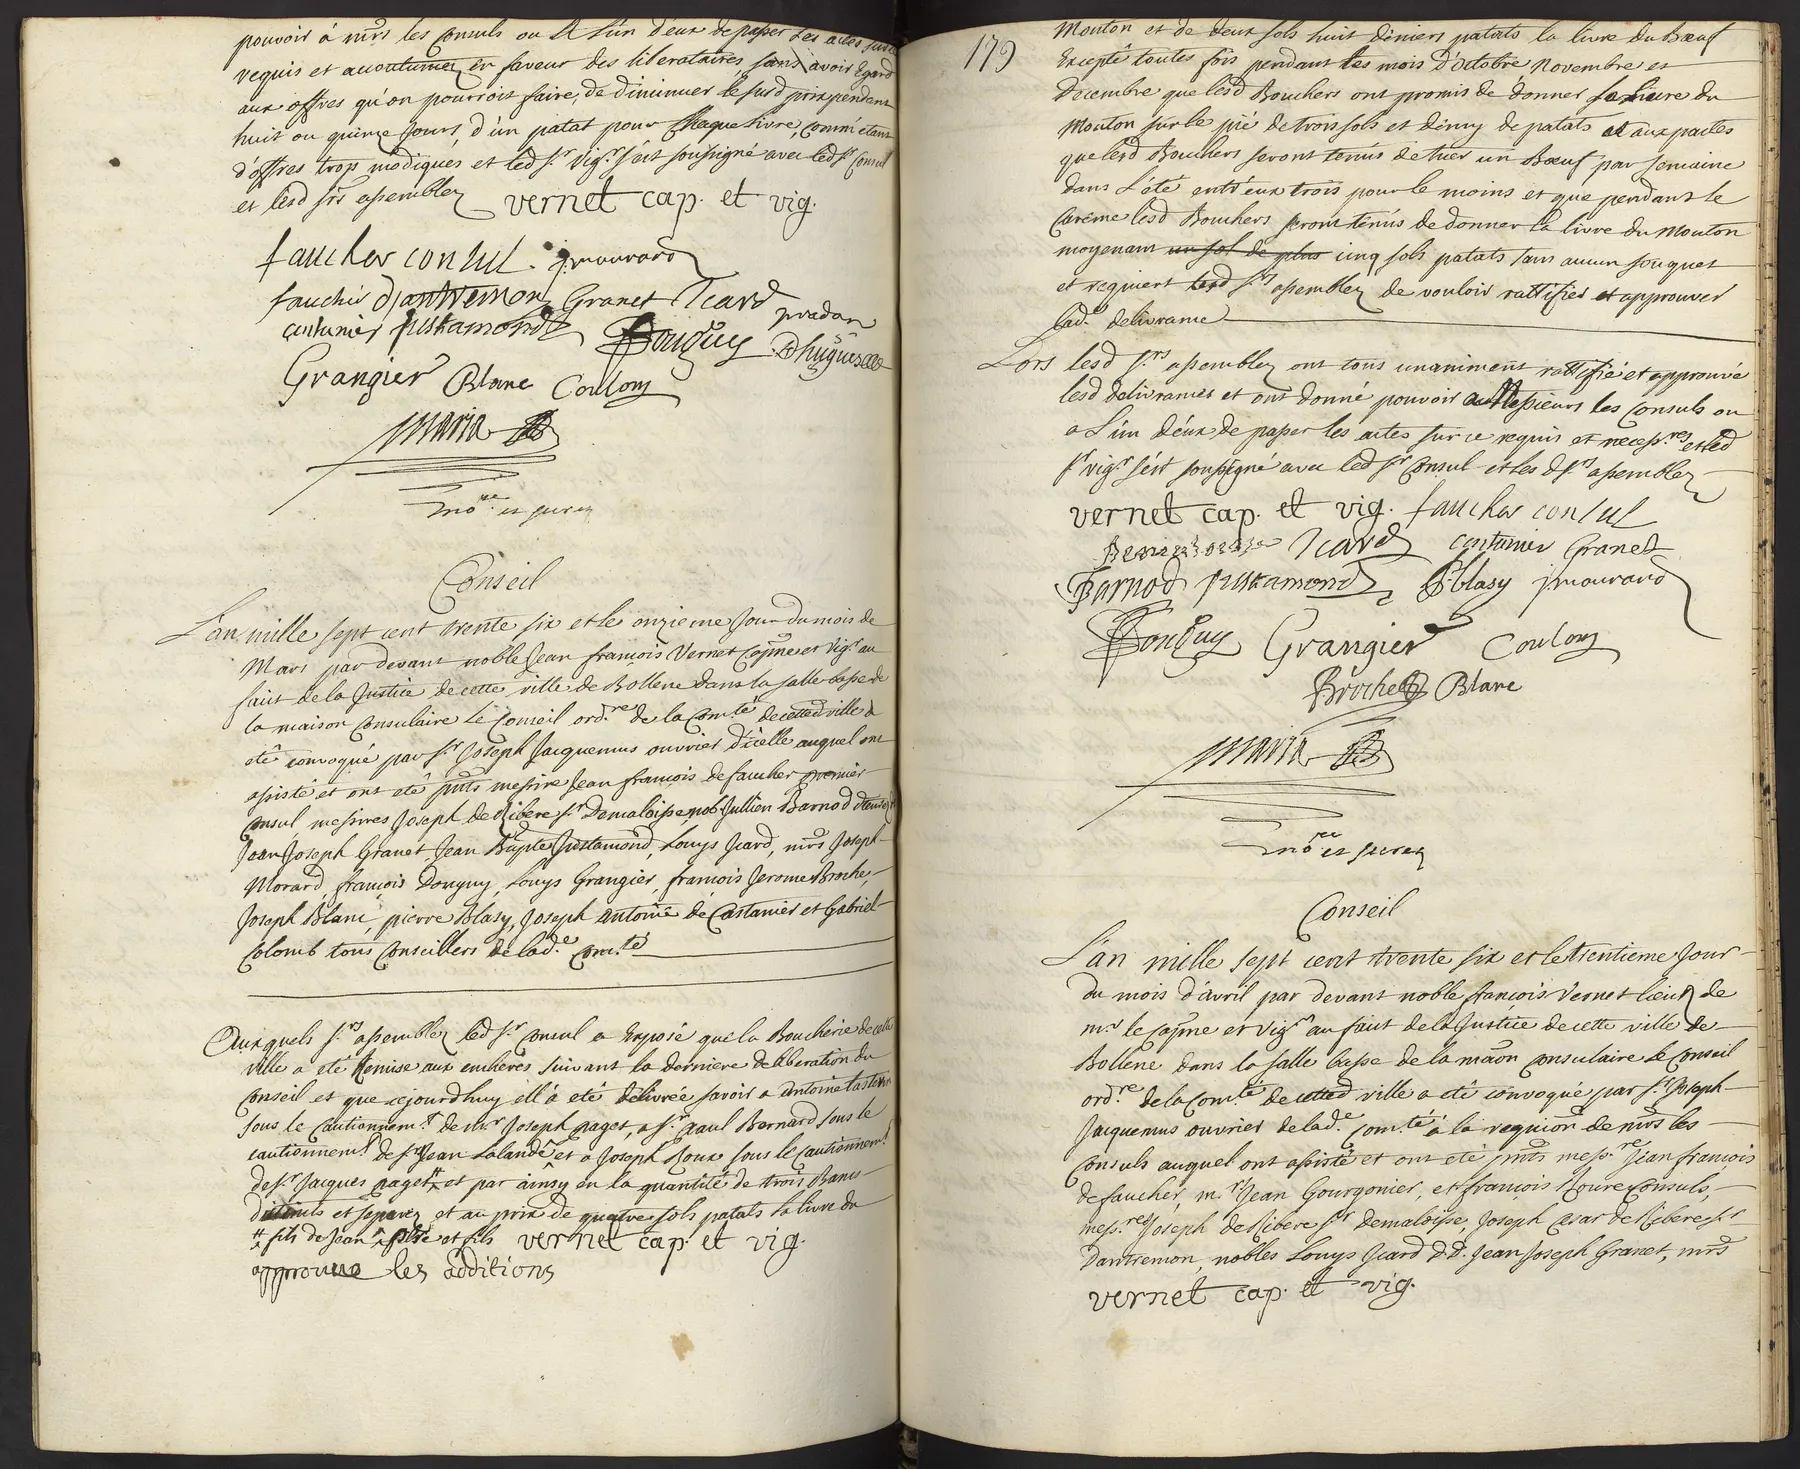 pouvoir à mrs les Consuls ou A L'ún d'eux de passer Les actes sur ce
requis et accoutumez en faveur des liberataires, sans avoir Egard
aux offres qu'on pourroit faire, de diminuer le susd prix pendent
huit ou quinze Jours, d'ún patat pour Chaque Livre, comm'étant
d'offres trop modiques et led sr. vigr. s'est soussigné avec led sr Consul
et lesd srs assemblez vernet cap. et vig.
faucher consul. j. mourard
fauchier d'antremon Granet Icard pradon
castanier justamond Douguy
Grangier Blanc Coulomb
Maria
Conseil
L'an mille sept cent trente six et le onzieme Jour du mois de
Mars par devant noble Jean francois Vernet Capne et vigr. au
fait de la Justice de cette ville de Bollene dans la salle basse de
la maison consulaire Le Conseil ordre de la Comté de cetted ville a
été convoqué par sr. Joseph Jacquemus ouvrier d'icelle auquel ont
assisté et ont eté pnts messire Jean francois de faucher premier
Consul, messires Joseph de Ribere sr. Demaloisse, nob. Jullien Barnod
Jean Joseph Granet Jean Bapte Justamond, Louys Icard, mrs Joseph
Morard, francois Dougny, Louys Grangier, francois Jerome Broche,
Joseph Blanc, pierre Blasy, Joseph antoine de Castanier et Gabriel
Colomb tous Conseillers de lade. Comté
Auxquels srs. assemblez led sr. Consul a Exposé que la Boucherie de cette
ville a eté Remise aux encheres suivant la derniere deliberation du
Conseil et que cejourdhuy ell'a eté délivrée savoir a antoine
sous le Cautionnemt. de mr Joseph paget, a sr. paul Bernard sous le
cautionnemt de sr Jean Lalande et a Joseph Roux sous le Cautionnemt
de sr Jacques paget et par ainsy en la quantité de trois Bancs
distints et séparez et au prix de quatre sols patats la livre du
fils de Jean pere et fils vernet cap. et vig.
approuve les additions
179
Mouton et de deux sols huit deniers patats la livre du Bœuf
Excepté toutes fois pendant les mois d'octobre Novembre et
Decembre que lesd Bouchers ont promis de donner la livre du
Mouton sur le pié de trois sols et demy de patats et aux pactes
que lesd Bouchers seront tenús de tuer un Bœuf par semaine
dans L'été entr'eux trois pour le moins et que pendant le
Careme lesd Bouchers seront tenús de donner la livre du Mouton
moyenant un sol de plus cinq sols patats sans aucun souquet
et requiert lesd srs assemblez de vouloir rattifier et approuver
lade. delivrance
Lors lesd srs. assemblez ont tous unanimemt rattifié et approuvé
lesd delivrances et ont donné pouvoir Messieurs les Consuls ou
a L'ún d'eux de passer les actes sur ce requis et necessres et led
sr vigr. s'est soussigné avec led sr Consul et les d srs assemblez
vernet cap. et vig. faucher consul
Icard castanier Granet
Barnod justamond P. blasy j. mourard
Douguy Grangier Coulomb
Broche Blanc
Maria
Conseil
L'an mille sept cent trente six et le trentieme Jour
du mois d'avril par devant noble francois Vernet lieut de
mr. le Capne et vigr au fait de la Justice de cette ville de
Bollene dans la salle basse de la maison consulaire Le Conseil
ordre. de la Comté de cetted ville a été convoqué par sr. Joseph
Jacquemus ouvrier de lade. Comté à la requion de mrs les
Consuls auquel ont assisté et ont eté pnts messre. Jean francois
de faucher, mr. Jean Gourgonier, et francois Roure Consuls,
messres Joseph de Ribere sr Demaloisse, Joseph Cesar de Ribere sr
Dantremon, nobles Louys Icard D.D. Jean Joseph Granet, mrs
vernet cap. et vig.